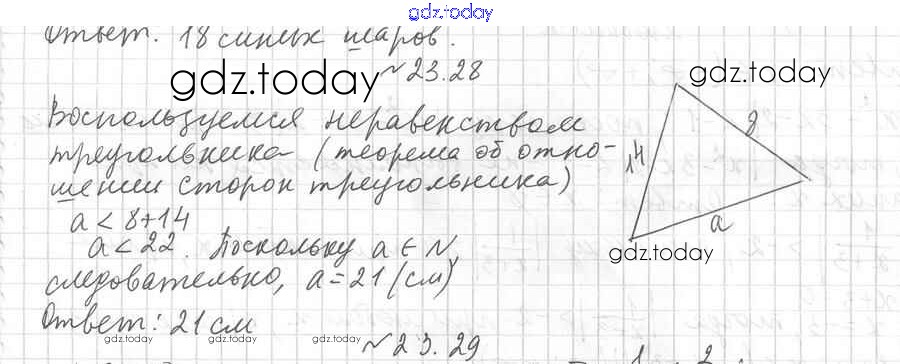 gdz.today
Ответ. 18 синих шаров.
№23.28
gdz.today
gdz.today
Воспользуемся неравенством
треугольника (теорема об отно-
шении сторон треугольника)
14
8
a
a < 8+14
a < 22. Поскольку a ∈ N,
gdz.today
следовательно, a = 21 (см)
Ответ: 21 см
gdz.today
gdz.today
№23.29